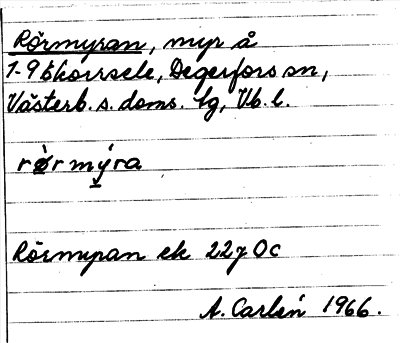 Rörmyran, myr å
1-9 Ekorrsele, Degerfors sn,
Västerb. s. doms. lg, Vb. l.
rö̀r mýra
Rörmyran ek 22J 0c
A. Carlén 1966.